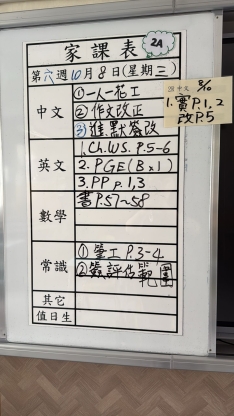 家課表
2A
第六週10月8日(星期三)
中文
①一人一花工
②作文改正
3)進.默簽改
8/10
1.寶P.1,2
改P.5
英文
1.Ch.WS. P.5-6
2.PGE(B×1)
3.PP p.1,3
數學
書P.57~58
常識
①常工P.3-4
②簽評估範圍
其它
值日生